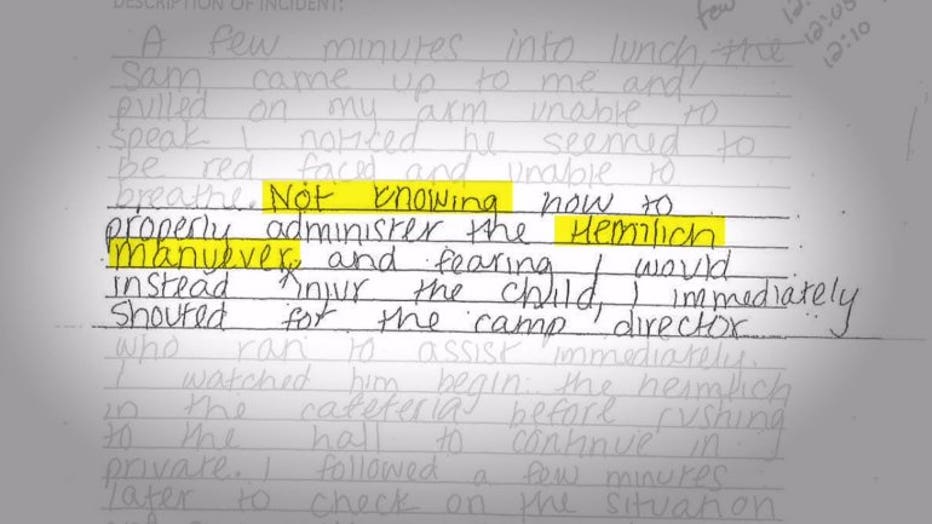 DESCRIPTION OF INCIDENT:
few
12:05
12:10
A few minutes into lunch, the
Sam came up to me and
pulled on my arm unable to
speak I noticed he seemed to
be red faced and unable to
breathe. Not knowing how to
properly administer the Hemilich
manuyever, and fearing I would
instead injur the child, I immediately
shouted for the camp director
who ran to assist immediately.
I watched him begin the heimlich
in the cafeteria before rushing
to the hall to continue in
private. I followed a few minutes
later to check on the situation